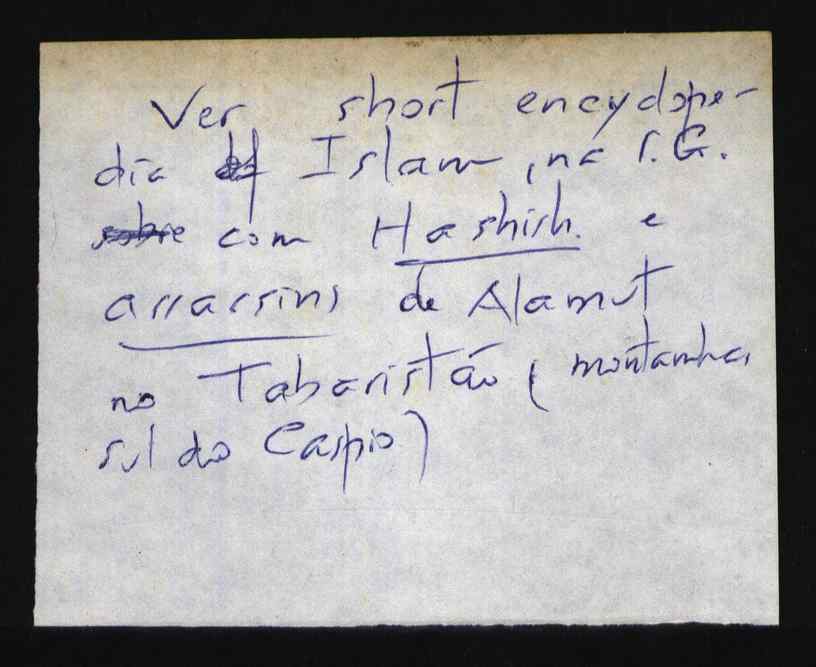 Ver short encyclope-
dia of Islam, na S.G.
sobre com Hashish e
assassins de Alamut
no Tabaristão (montanhas
sul do Caspio)